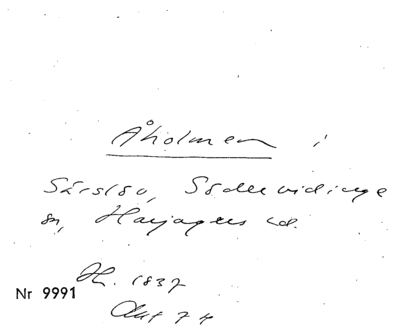 Åholmen i
Särslöv, Södervidinge
sn, Harjagers hd.
H. 1837
Nr 9991
Akt 74